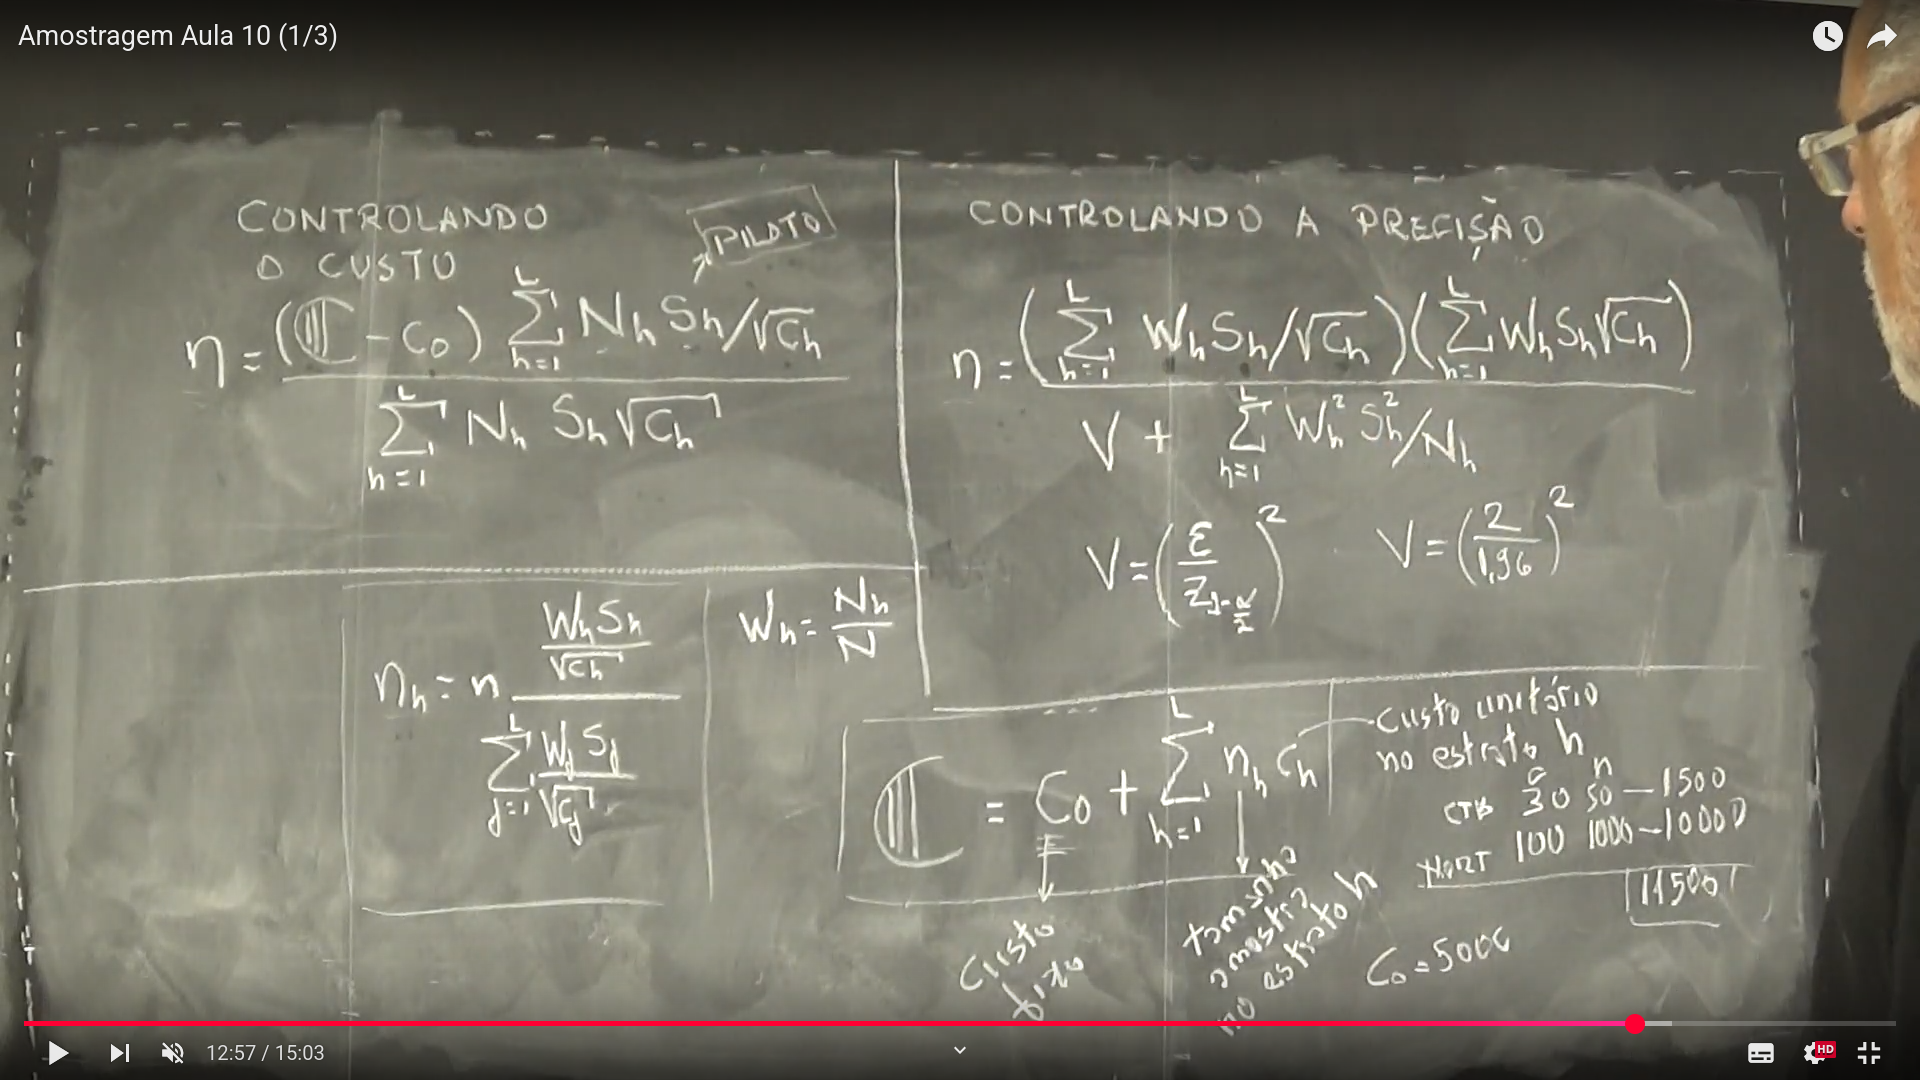 Amostragem Aula 10 (1/3)
CONTROLANDO
O CUSTO
PILOTO
n = (ℂ - C₀) Σ_{h=1}^{L} N_h S_h/√C_h
Σ_{h=1}^{L} N_h S_h √C_h
CONTROLANDO A PRECISÃO
n = (Σ_{h=1}^{L} W_h S_h/√C_h)(Σ_{h=1}^{L} W_h S_h √C_h)
V + Σ_{h=1}^{L} W_h² S_h²/N_h
V = (ε/Z_{1-α/2})² V = (2/1,96)²
n_h = n (W_h S_h/√C_h)
Σ_{j=1}^{L} W_j S_j/√C_j
W_h = N_h/N
ℂ = C₀ + Σ_{h=1}^{L} n_h C_h
Custo
fixo
tamanho
amostra
no estrato h
Custo unitário
no estrato h
c n
CTB 30 50 — 1500
NORT 100 1000 — 10000
11500
C₀ = 5000
12:57 / 15:03
HD